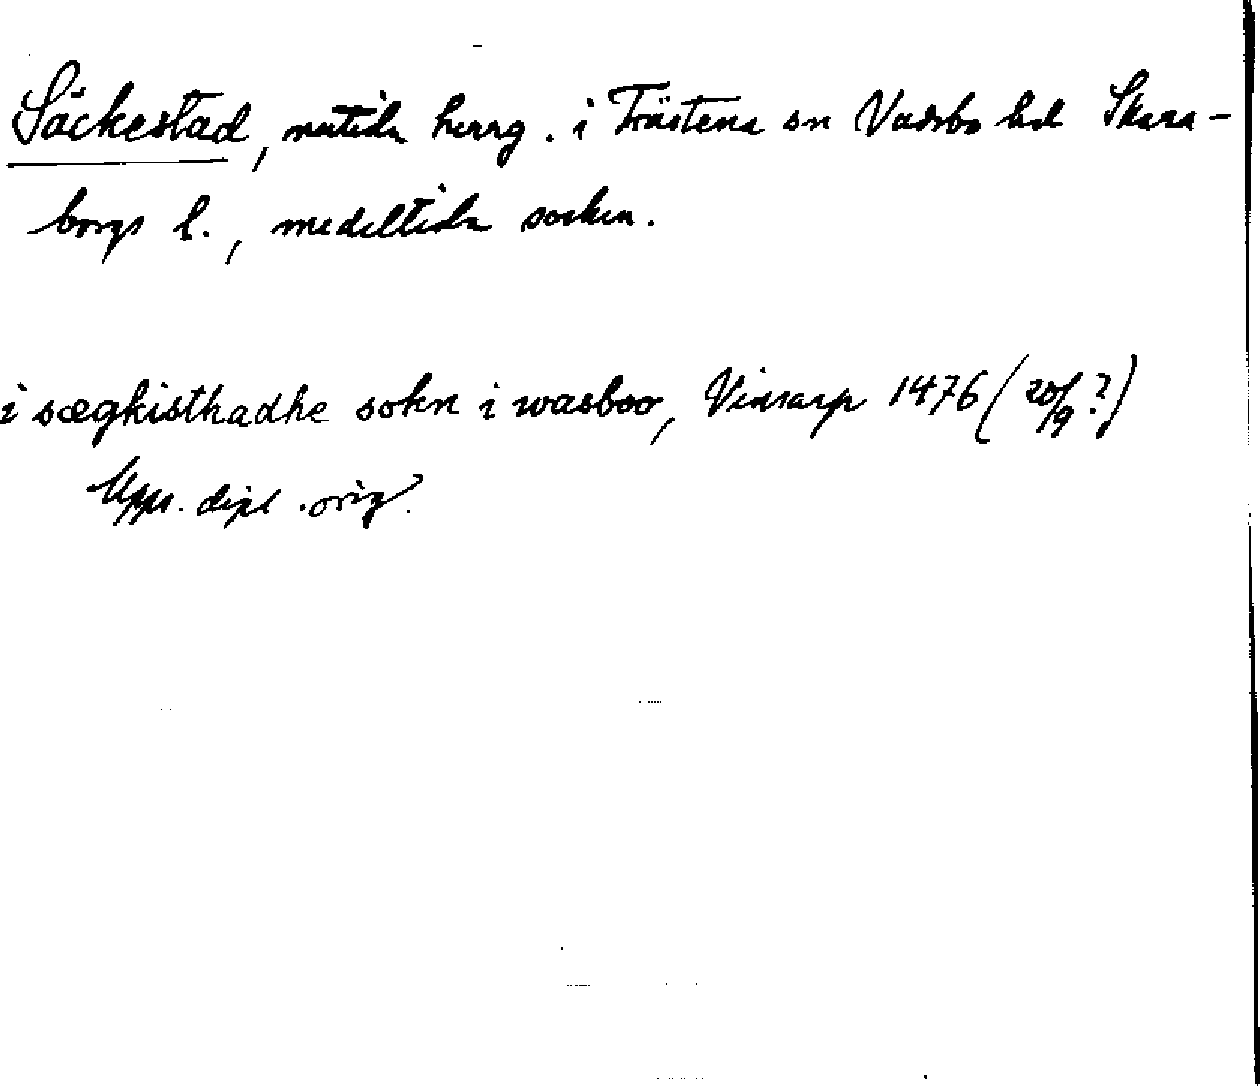 Säckestad, nutida herrg. i Trästena sn Vadsbo hd Skara-
borgs l., medeltida socken.
i sægkisthadhe sokn i wasboo, Vinsarp 1476 (20/9?)
Upps. dipl. orig.